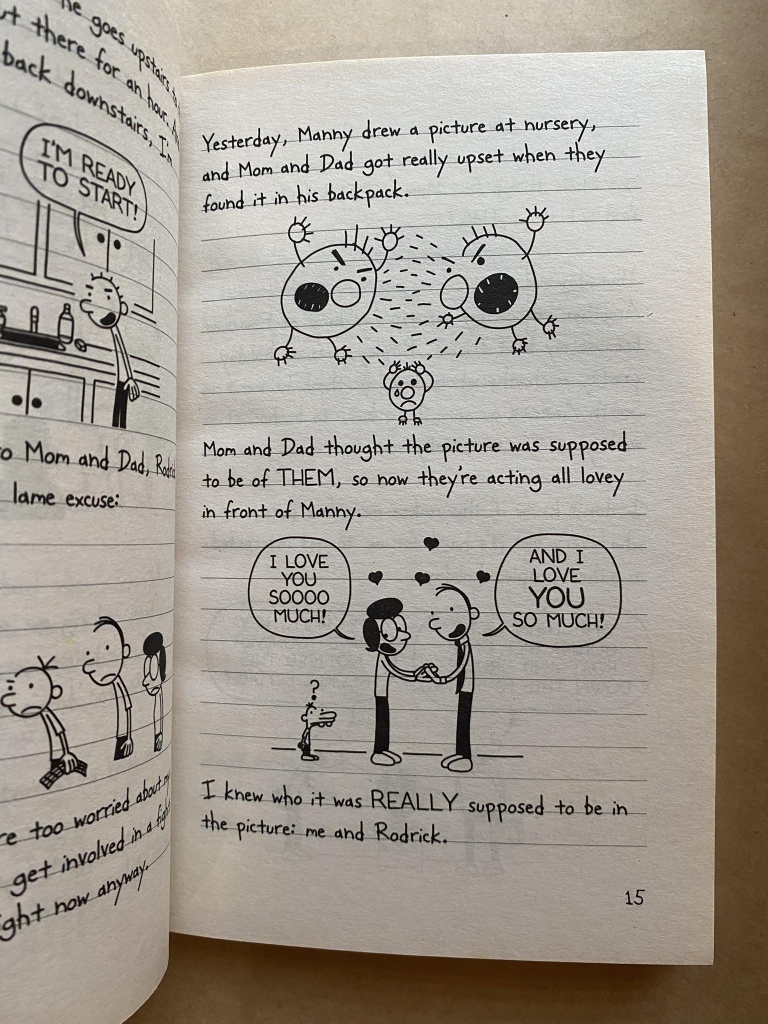 he goes upstairs to
there for an hour.
back downstairs, I'm
I'M READY
TO START!
to Mom and Dad,
lame excuse:
too worried about my
get involved in a fight
right now anyway.
Yesterday, Manny drew a picture at nursery,
and Mom and Dad got really upset when they
found it in his backpack.
Mom and Dad thought the picture was supposed
to be of THEM, so now they're acting all lovey
in front of Manny.
I LOVE
YOU
SOOOO
MUCH!
AND I
LOVE
YOU
SO MUCH!
?
I knew who it was REALLY supposed to be in
the picture: me and Rodrick.
15